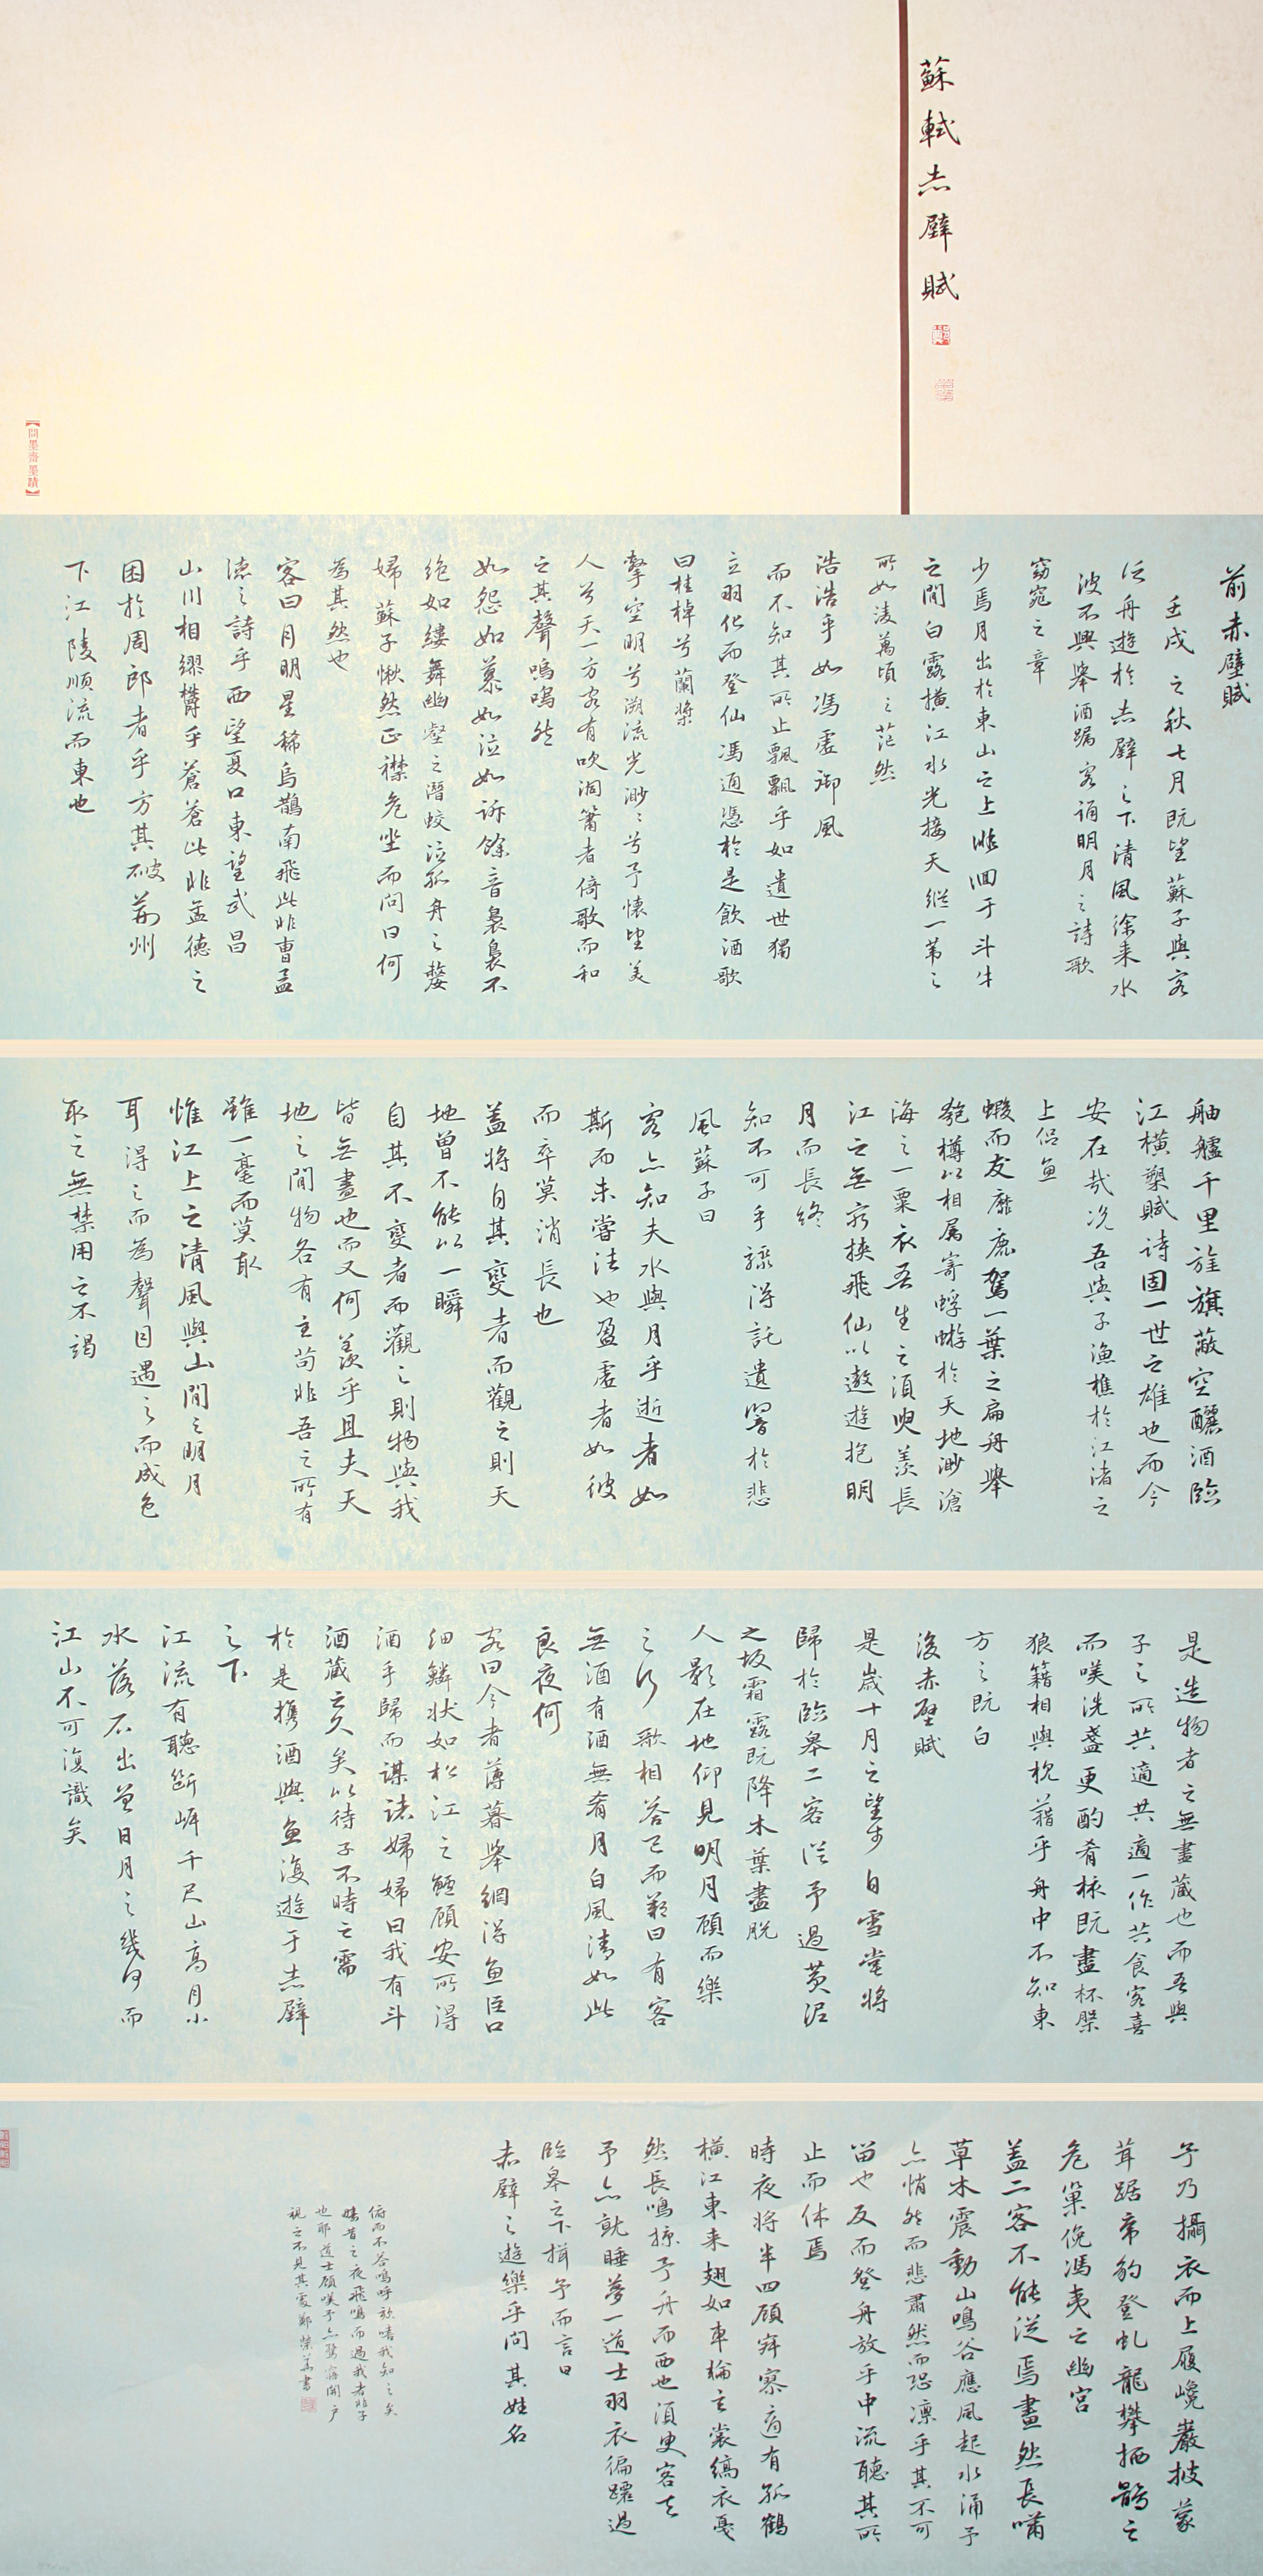 蘇軾赤壁賦
【問墨齋墨蹟】
前赤壁賦
壬戌之秋七月既望蘇子與客
泛舟遊於赤壁之下清風徐來水
波不興舉酒囑客誦明月之詩歌
窈窕之章
少焉月出於東山之上徘徊于斗牛
之間白露橫江水光接天縱一葦之
所如凌萬頃之茫然
浩浩乎如馮虛御風
而不知其所止飄飄乎如遺世獨
立羽化而登仙馮通憑於是飲酒歌
曰桂棹兮蘭槳
擊空明兮溯流光渺〻兮予懷望美
人兮天一方客有吹洞簫者倚歌而和
之其聲嗚嗚然
如怨如慕如泣如訴餘音裊裊不
絕如縷舞幽壑之潛蛟泣孤舟之嫠
婦蘇子愀然正襟危坐而問曰何
為其然也
客曰月明星稀烏鵲南飛此非曹孟
德之詩乎西望夏口東望武昌
山川相繆鬱乎蒼蒼此非孟德之
困於周郎者乎方其破荊州
下江陵順流而東也
舳艫千里旌旗蔽空釃酒臨
江橫槊賦詩固一世之雄也而今
安在哉況吾與子漁樵於江渚之
上侶魚
蝦而友麋鹿駕一葉之扁舟舉
匏樽以相屬寄蜉蝣於天地渺滄
海之一粟哀吾生之須臾羨長
江之無窮挾飛仙以遨遊抱明
月而長終
知不可乎驟得託遺響於悲
風蘇子曰
客亦知夫水與月乎逝者如
斯而未嘗往也盈虛者如彼
而卒莫消長也
蓋將自其變者而觀之則天
地曾不能以一瞬
自其不變者而觀之則物與我
皆無盡也而又何羨乎且夫天
地之間物各有主苟非吾之所有
雖一毫而莫取
惟江上之清風與山間之明月
耳得之而為聲目遇之而成色
取之無禁用之不竭
是造物者之無盡藏也而吾與
子之所共適共適一作共食客喜
而笑洗盞更酌肴核既盡杯盤
狼籍相與枕藉乎舟中不知東
方之既白
後赤壁賦
是歲十月之望步自雪堂將
歸於臨皋二客從予過黃泥
之坂霜露既降木葉盡脫
人影在地仰見明月顧而樂
之行歌相答已而歎曰有客
無酒有酒無肴月白風清如此
良夜何
客曰今者薄暮舉網得魚巨口
細鱗狀如松江之鱸顧安所得
酒乎歸而謀諸婦婦曰我有斗
酒藏之久矣以待子不時之需
於是攜酒與魚復遊于赤壁
之下
江流有聲斷岸千尺山高月小
水落石出曾日月之幾何而
江山不可復識矣
予乃攝衣而上履巉巖披蒙
茸踞虎豹登虬龍攀栖鶻之
危巢俯馮夷之幽宮
蓋二客不能從焉劃然長嘯
草木震動山鳴谷應風起水涌予
亦悄然而悲肅然而恐凜乎其不可
留也反而登舟放乎中流聽其所
止而休焉
時夜將半四顧寂寥適有孤鶴
橫江東來翅如車輪玄裳縞衣戛
然長鳴掠予舟而西也須臾客去
予亦就睡夢一道士羽衣蹁躚過
臨皋之下揖予而言曰
赤壁之遊樂乎問其姓名
俯而不答嗚呼噫嘻我知之矣
疇昔之夜飛鳴而過我者非子
也耶道士顧笑予亦驚寤開戶
視之不見其處鄭榮萬書